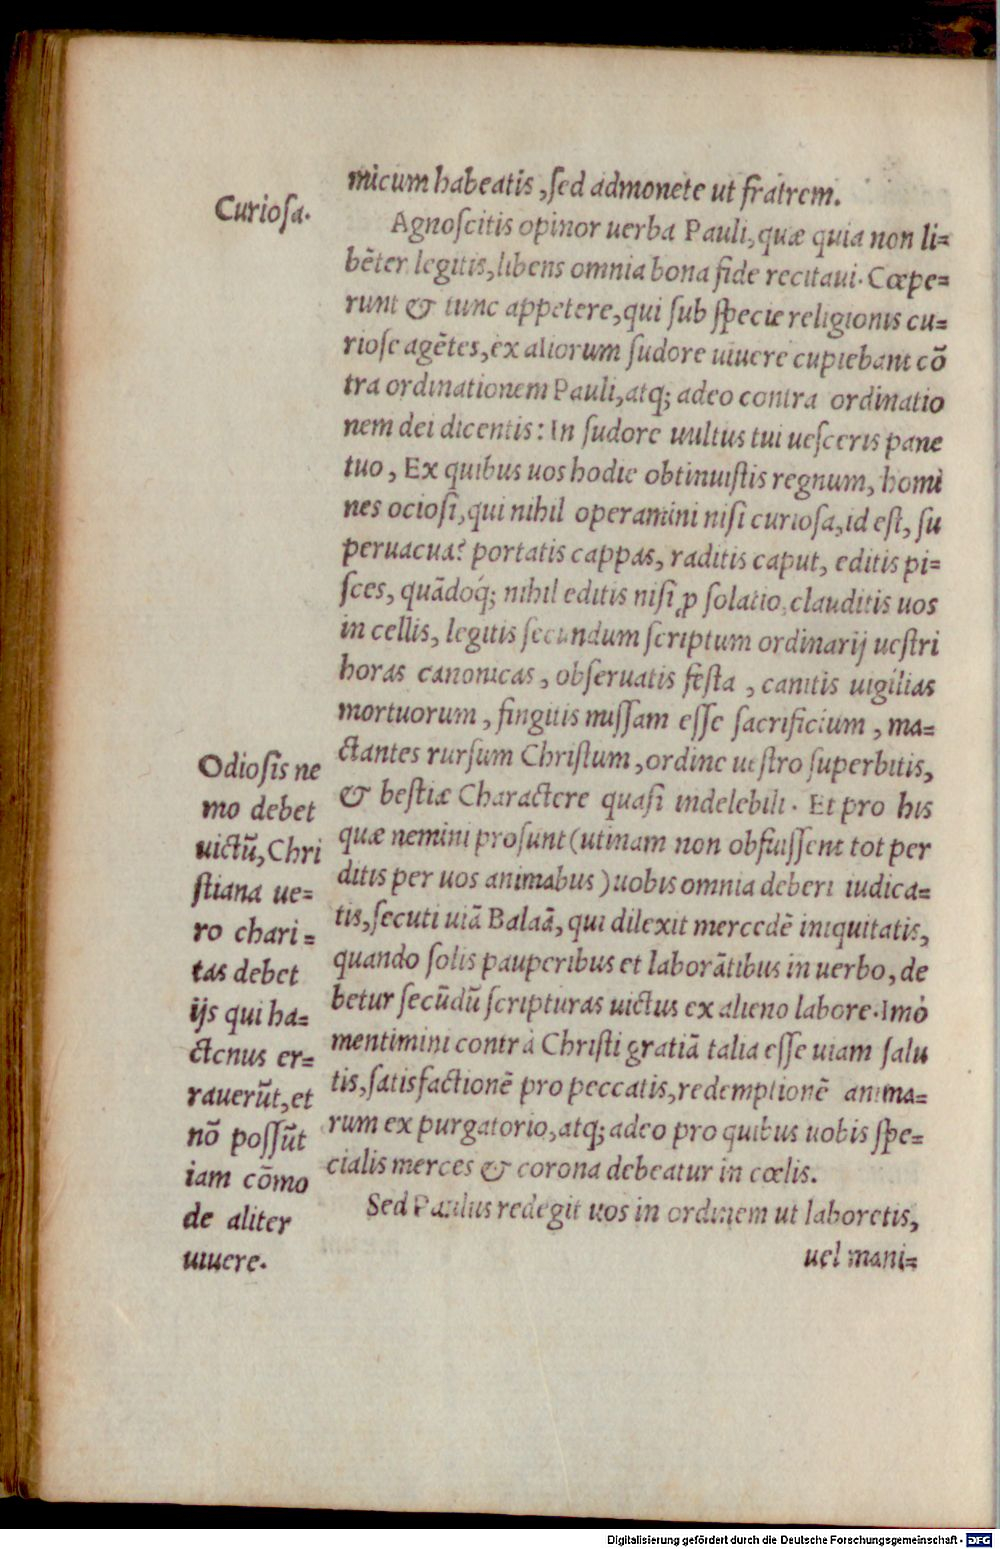 micum habeatis, sed admonete ut fratrem.
Curiosa.
Agnoscitis opinor uerba Pauli, quæ quia non li=
bēter legitis, libens omnia bona fide recitaui. Cœpe=
runt & tunc appetere, qui sub specie religionis cu=
riose agētes, ex aliorum sudore uiuere cupiebant cō
tra ordinationem Pauli, atq; adeo contra ordinatio
nem dei dicentis: In sudore uultus tui uesceris pane
tuo, Ex quibus uos hodie obtinuistis regnum, homi
nes ociosi, qui nihil operamini nisi curiosa, id est, su
peruacua? portatis cappas, raditis caput, editis pi=
sces, quādoq́; nihil editis nisi ꝓ solatio, clauditis uos
in cellis, legitis secundum scriptum ordinarij uestri
horas canonicas, obseruatis festa, canitis uigilias
mortuorum, fingitis missam esse sacrificium, ma=
ctantes rursum Christum, ordine uestro superbitis,
& bestiæ Charactere quasi indelebili. Et pro his
quæ nemini prosunt (utinam non obfuissent tot per
ditis per uos animabus) uobis omnia deberi iudica=
tis, secuti uiā Balaā, qui dilexit mercedē iniquitatis,
quando solis pauperibus et laborātibus in uerbo, de
betur secūdū scripturas uictus ex alieno labore. Imò
mentimini contra Christi gratiā talia esse uiam salu
tis, satisfactionē pro peccatis, redemptionē anima=
rum ex purgatorio, atq; adeo pro quibus uobis spe=
cialis merces & corona debeatur in cœlis.
Odiosis ne
mo debet
uictū, Chri
stiana ue=
ro chari=
tas debet
ijs qui ha=
ctenus er=
rauerūt, et
nō possūt
iam cōmo
de aliter
uiuere.
Sed Paulus redegit uos in ordinem ut laboretis,
uel mani=
Digitalisierung gefördert durch die Deutsche Forschungsgemeinschaft - DFG